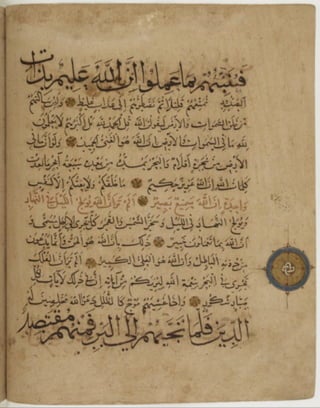 فننبئهم بما عملوا ان الله عليم بذات
الصدور نمتعهم قليلا ثم نضطرهم الى عذاب غليظ ولئن سالتهم
من خلق السموات والارض ليقولن الله قل الحمد لله بل اكثرهم لا يعلمون
لله ما في السموات والارض ان الله هو الغني الحميد ولو ان ما في
الارض من شجرة اقلام والبحر يمده من بعده سبعة ابحر ما نفدت
كلمات الله ان الله عزيز حكيم ما خلقكم ولا بعثكم الا كنفس
واحدة ان الله سميع بصير الم تر ان الله يولج الليل في النهار
ويولج النهار في الليل وسخر الشمس والقمر كل يجري الى اجل مسمى و
ان الله بما تعملون خبير ذلك بان الله هو الحق وان ما يدعون
من دونه الباطل وان الله هو العلي الكبير الم تر ان الفلك
تجري في البحر بنعمت الله ليريكم من آياته ان في ذلك لآيات لكل
صبار شكور واذا غشيهم موج كالظلل دعوا الله مخلصين له
الدين فلما نجيهم الى البر فمنهم مقتصد